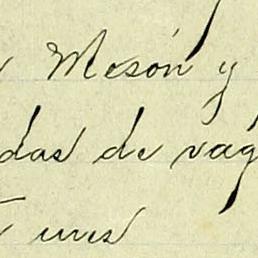 Mesón y
das de vag
unes